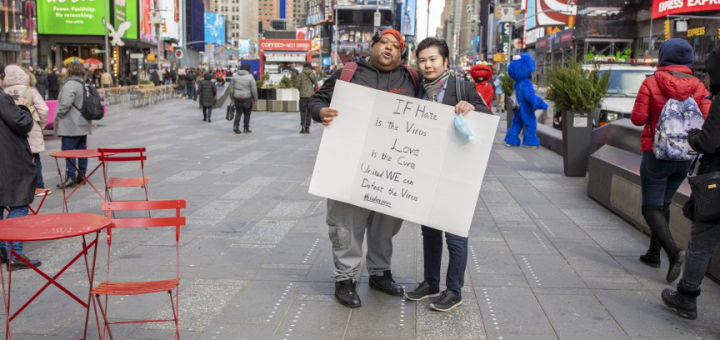 EXPRESS
IF Hate
is the Virus
Love
is the Cure
United WE can
Defeat the Virus